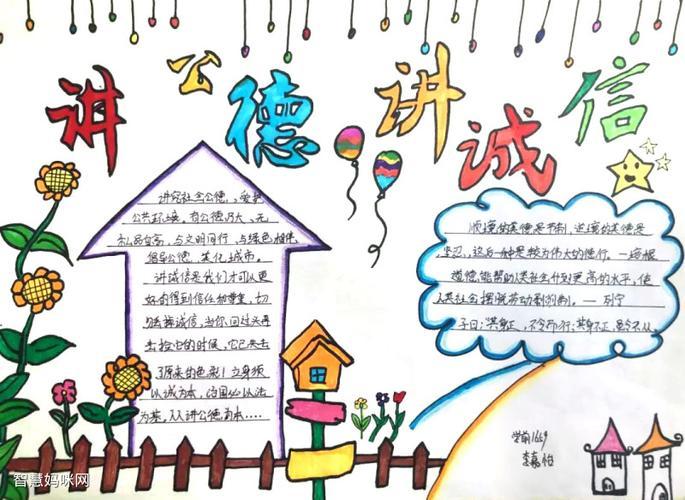 讲公德讲诚信
讲究社会公德,爱护
公共环境。有公德乃大,无
私品自高,与文明同行,与绿色相伴
倡导公德,美化城市。
讲诚信是我们才可以更
好的得到信任和尊重,切
莫丢掉诚信,当你回过头再
去捡它的时候,它已失去
了原来的色彩!立身须
以诚为本,治国必以法
为基,人人讲公德有本....
顺境的美德是节制,逆境的美德是
坚忍,这后一种是较为伟大的德行。—培根
道德能帮助人类社会升到更高的水平,使
人类社会摆脱劳动剥削制。— 列宁
子曰:其身正,不令而行;其身不正,虽令不从
学前1669
李嘉怡
智慧妈咪网